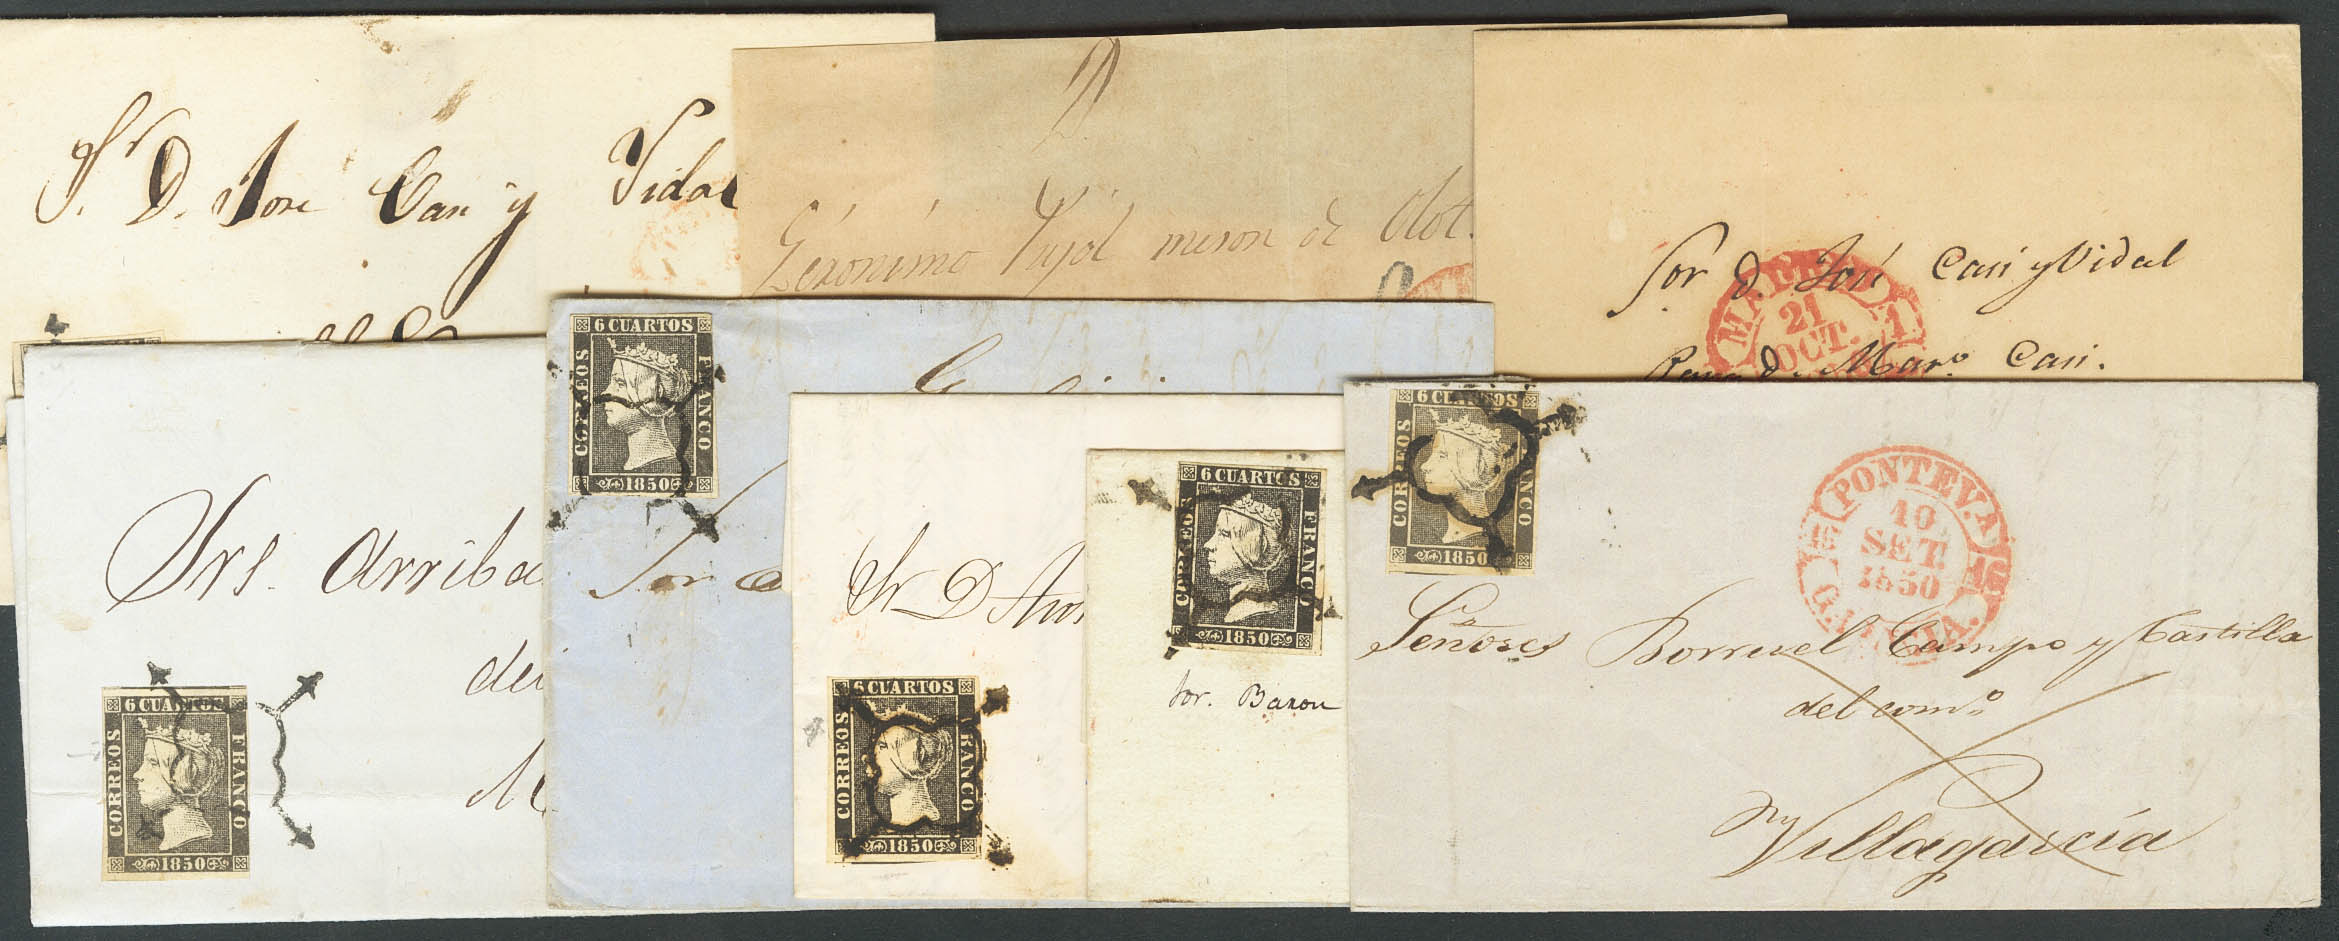 Sr. D. José Casi y Vidal
Gerónimo Pujol meson de Olot.
Sor D. José Casi y Vidal
MA
21
OCT.
1
Mar.º Casi.
6 CUARTOS
CORREOS
FRANCO
1850
Srs. Arriba
del
6 CUARTOS
CORREOS
FRANCO
1850
Sor
Sr D
6 CUARTOS
CORREOS
FRANCO
1850
6 CUARTOS
CORREOS
FRANCO
1850
Sor. Baron
6 CUARTOS
CORREOS
FRANCO
1850
PONTEV.A
10
SET.
1850
16
GALICIA.
Señores Borruel Campo y Castilla
del com.º
Villagarcía